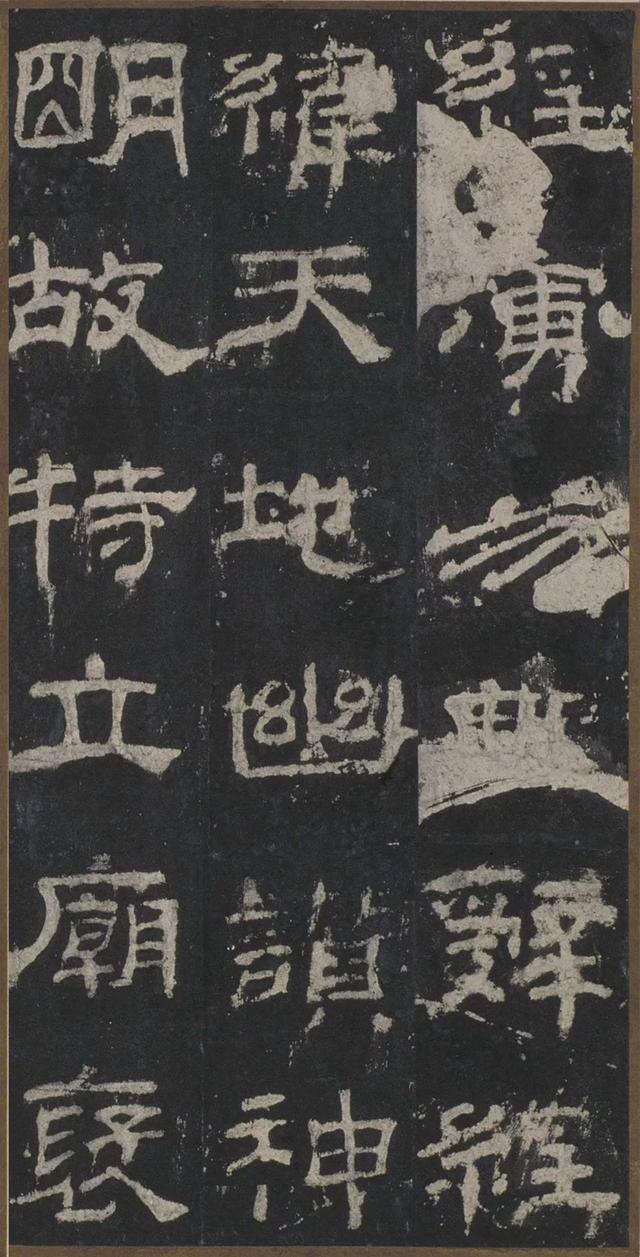 經演易辭經
緯天地幽讚神
明故特立廟褒